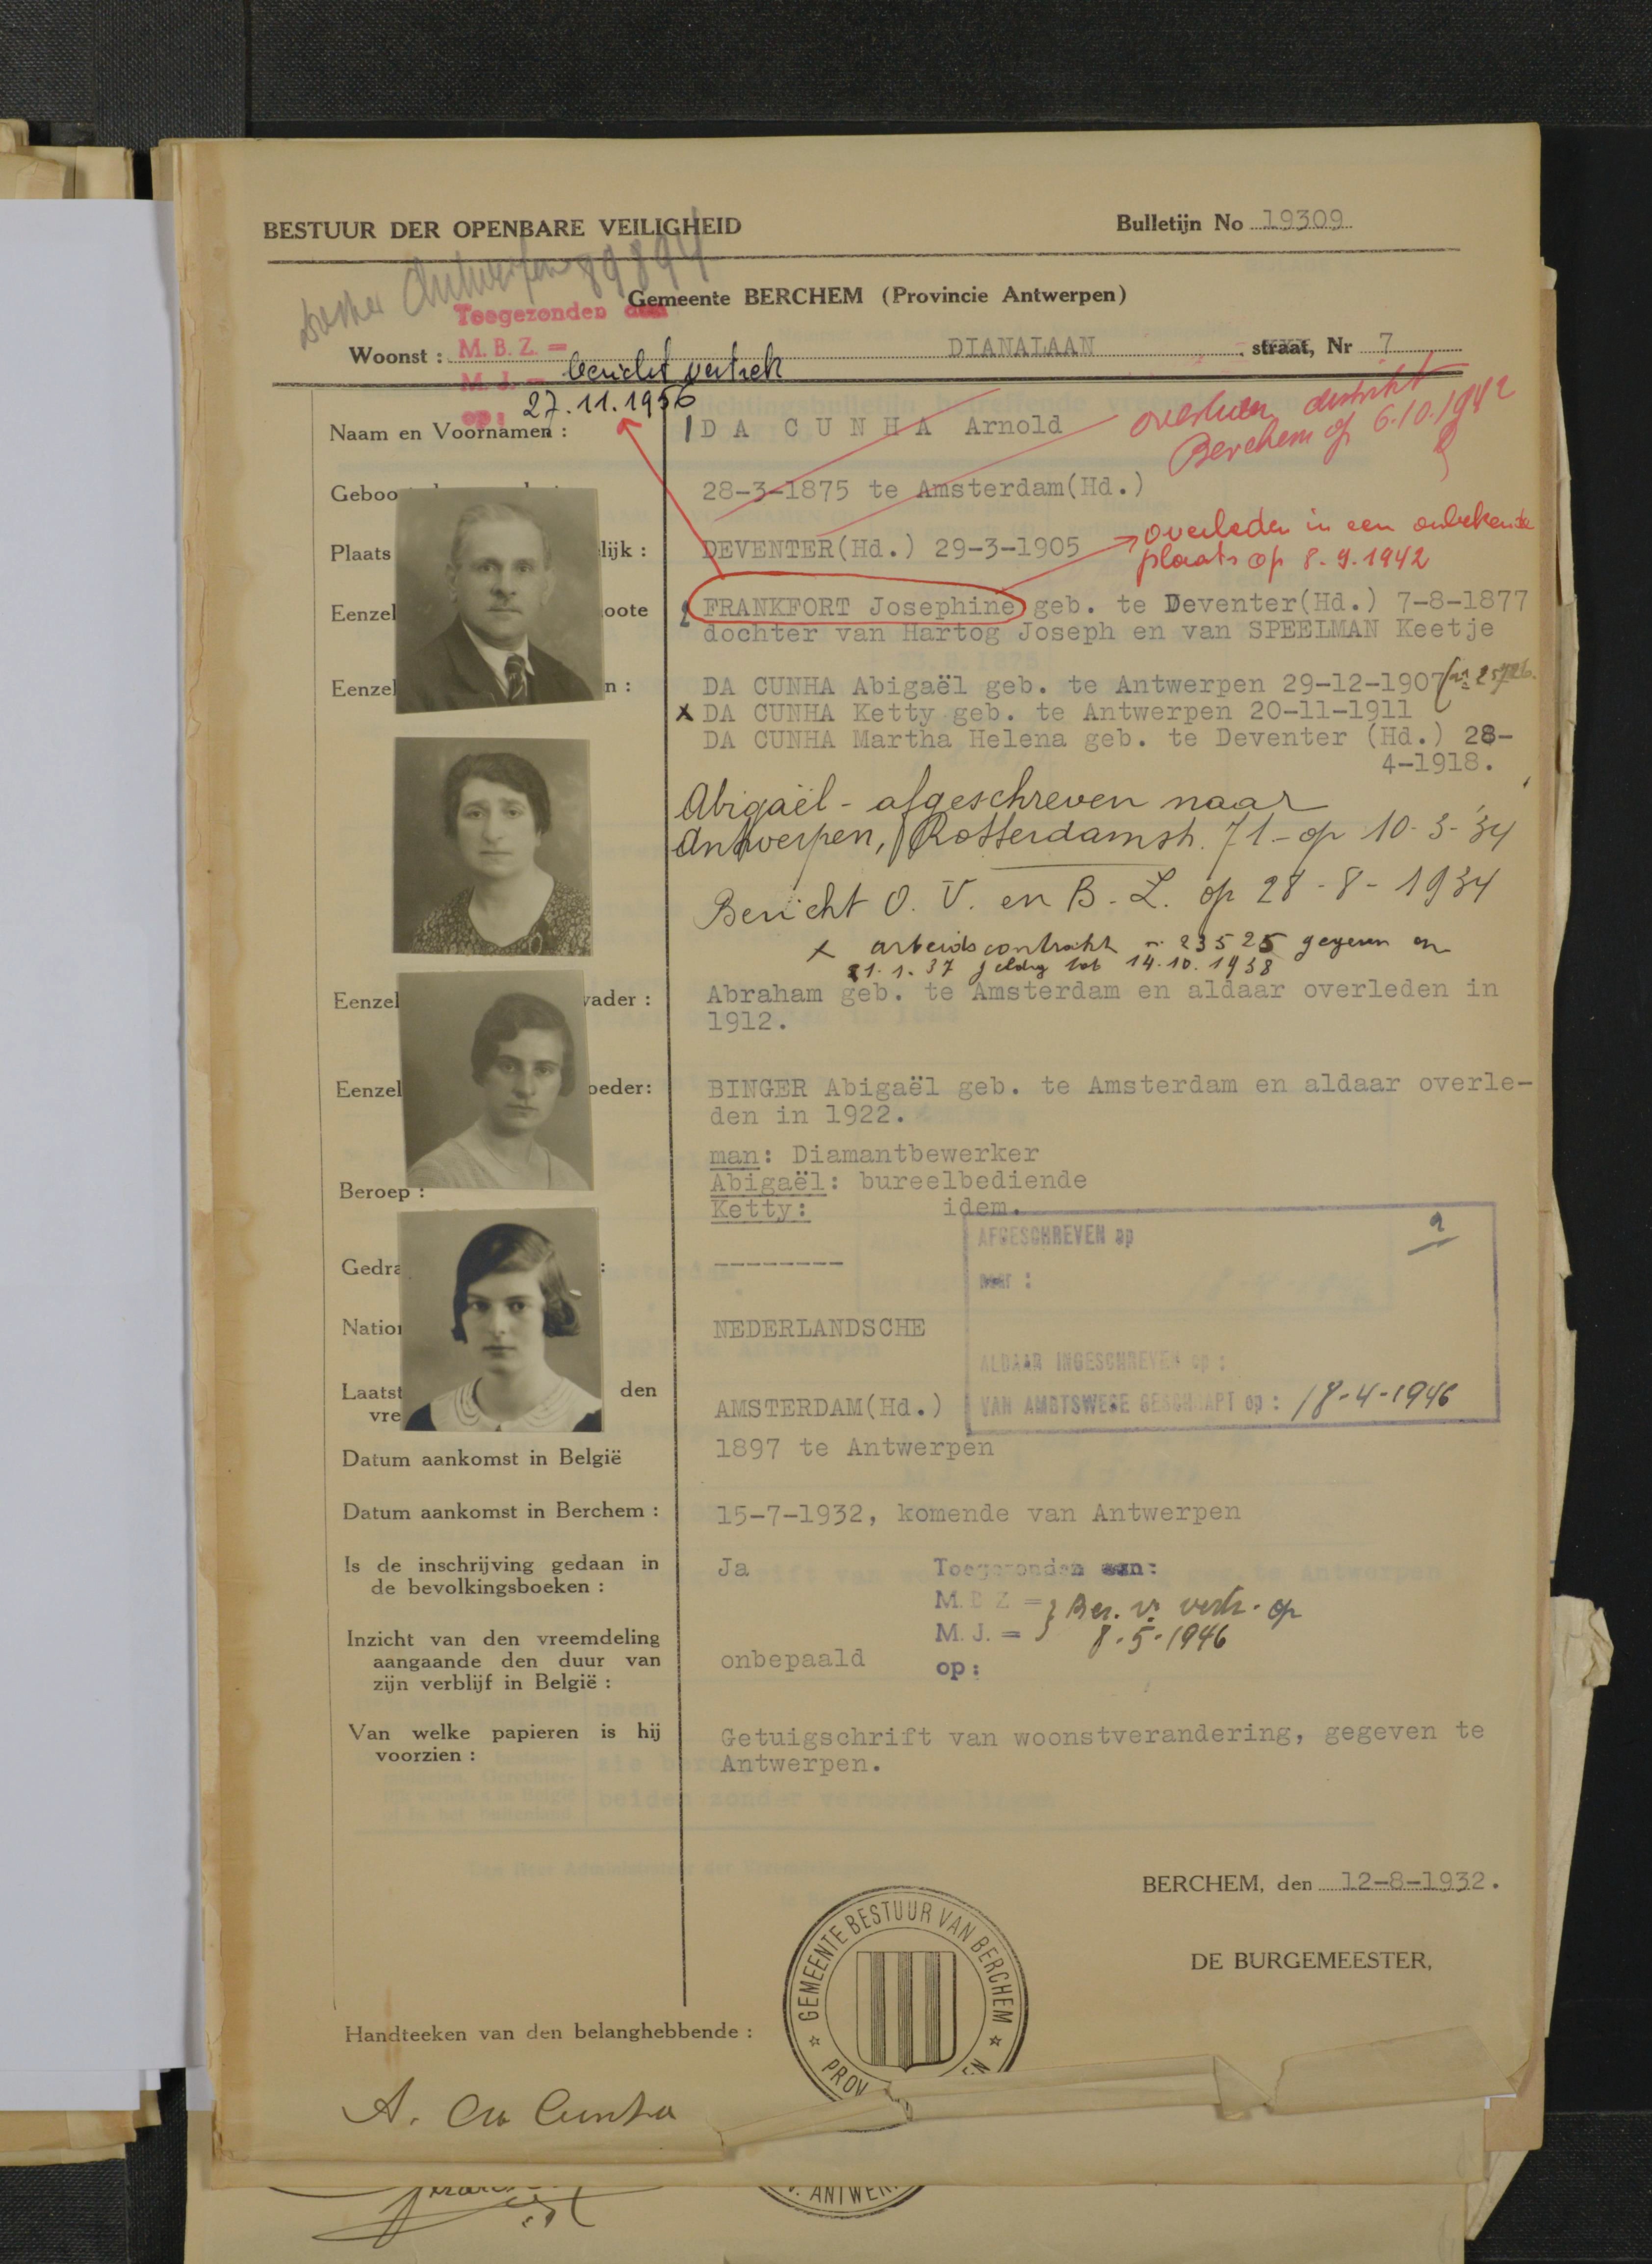 BESTUUR DER OPENBARE VEILIGHEID
Bulletijn No 19309
Antwerpen 89894
Gemeente BERCHEM (Provincie Antwerpen)
Toegezonden aan
M. B. Z. =
M. J. =
op:
Woonst : DIANALAAN straat, Nr 7
bericht vertrek
27.11.1956
Naam en Voornamen :
1 DA CUNHA Arnold
overleden district
Berchem op 6.10.1942
Geboo
28-3-1875 te Amsterdam(Hd.)
Plaats lijk :
DEVENTER(Hd.) 29-3-1905
overleden in een onbekende
plaats op 8.9.1942
Eenzel oote
2 FRANKFORT Josephine geb. te Deventer(Hd.) 7-8-1877
dochter van Hartog Joseph en van SPEELMAN Keetje
Eenzel n :
DA CUNHA Abigaël geb. te Antwerpen 29-12-1907
X DA CUNHA Ketty geb. te Antwerpen 20-11-1911
DA CUNHA Martha Helena geb. te Deventer (Hd.) 28-
4-1918.
Abigaël - afgeschreven naar
Antwerpen, Rotterdamstr. 71 - op 10-3-'34
Bericht O. V. en B. L. op 28-8-1934
x arbeidscontrakt nr 23525 gegeven en
21.1.37 geldig tot 14.10.1938
Eenzel vader :
Abraham geb. te Amsterdam en aldaar overleden in
1912.
Eenzel oeder:
BINGER Abigaël geb. te Amsterdam en aldaar overle-
den in 1922.
Beroep :
man: Diamantbewerker
Abigaël: bureelbediende
Ketty: idem.
AFGESCHREVEN op
naar :
ALDAAR INGESCHREVEN op :
VAN AMBTSWEGE GESCHRAPT op : 18-4-1946
Gedra :
--------
Nation
NEDERLANDSCHE
Laatst den
vre
AMSTERDAM(Hd.)
Datum aankomst in België
1897 te Antwerpen
Datum aankomst in Berchem :
15-7-1932, komende van Antwerpen
Is de inschrijving gedaan in
de bevolkingsboeken :
Ja
Toegezonden aan:
M. B Z =
M. J. =
op:
Ber. v. vertr. op
8-5-1946
Inzicht van den vreemdeling
aangaande den duur van
zijn verblijf in België :
onbepaald
Van welke papieren is hij
voorzien :
Getuigschrift van woonstverandering, gegeven te
Antwerpen.
BERCHEM, den 12-8-1932.
DE BURGEMEESTER,
GEMEENTE BESTUUR VAN BERCHEM
PROV EN
Handteeken van den belanghebbende :
A. Da Cunha
ANTWER